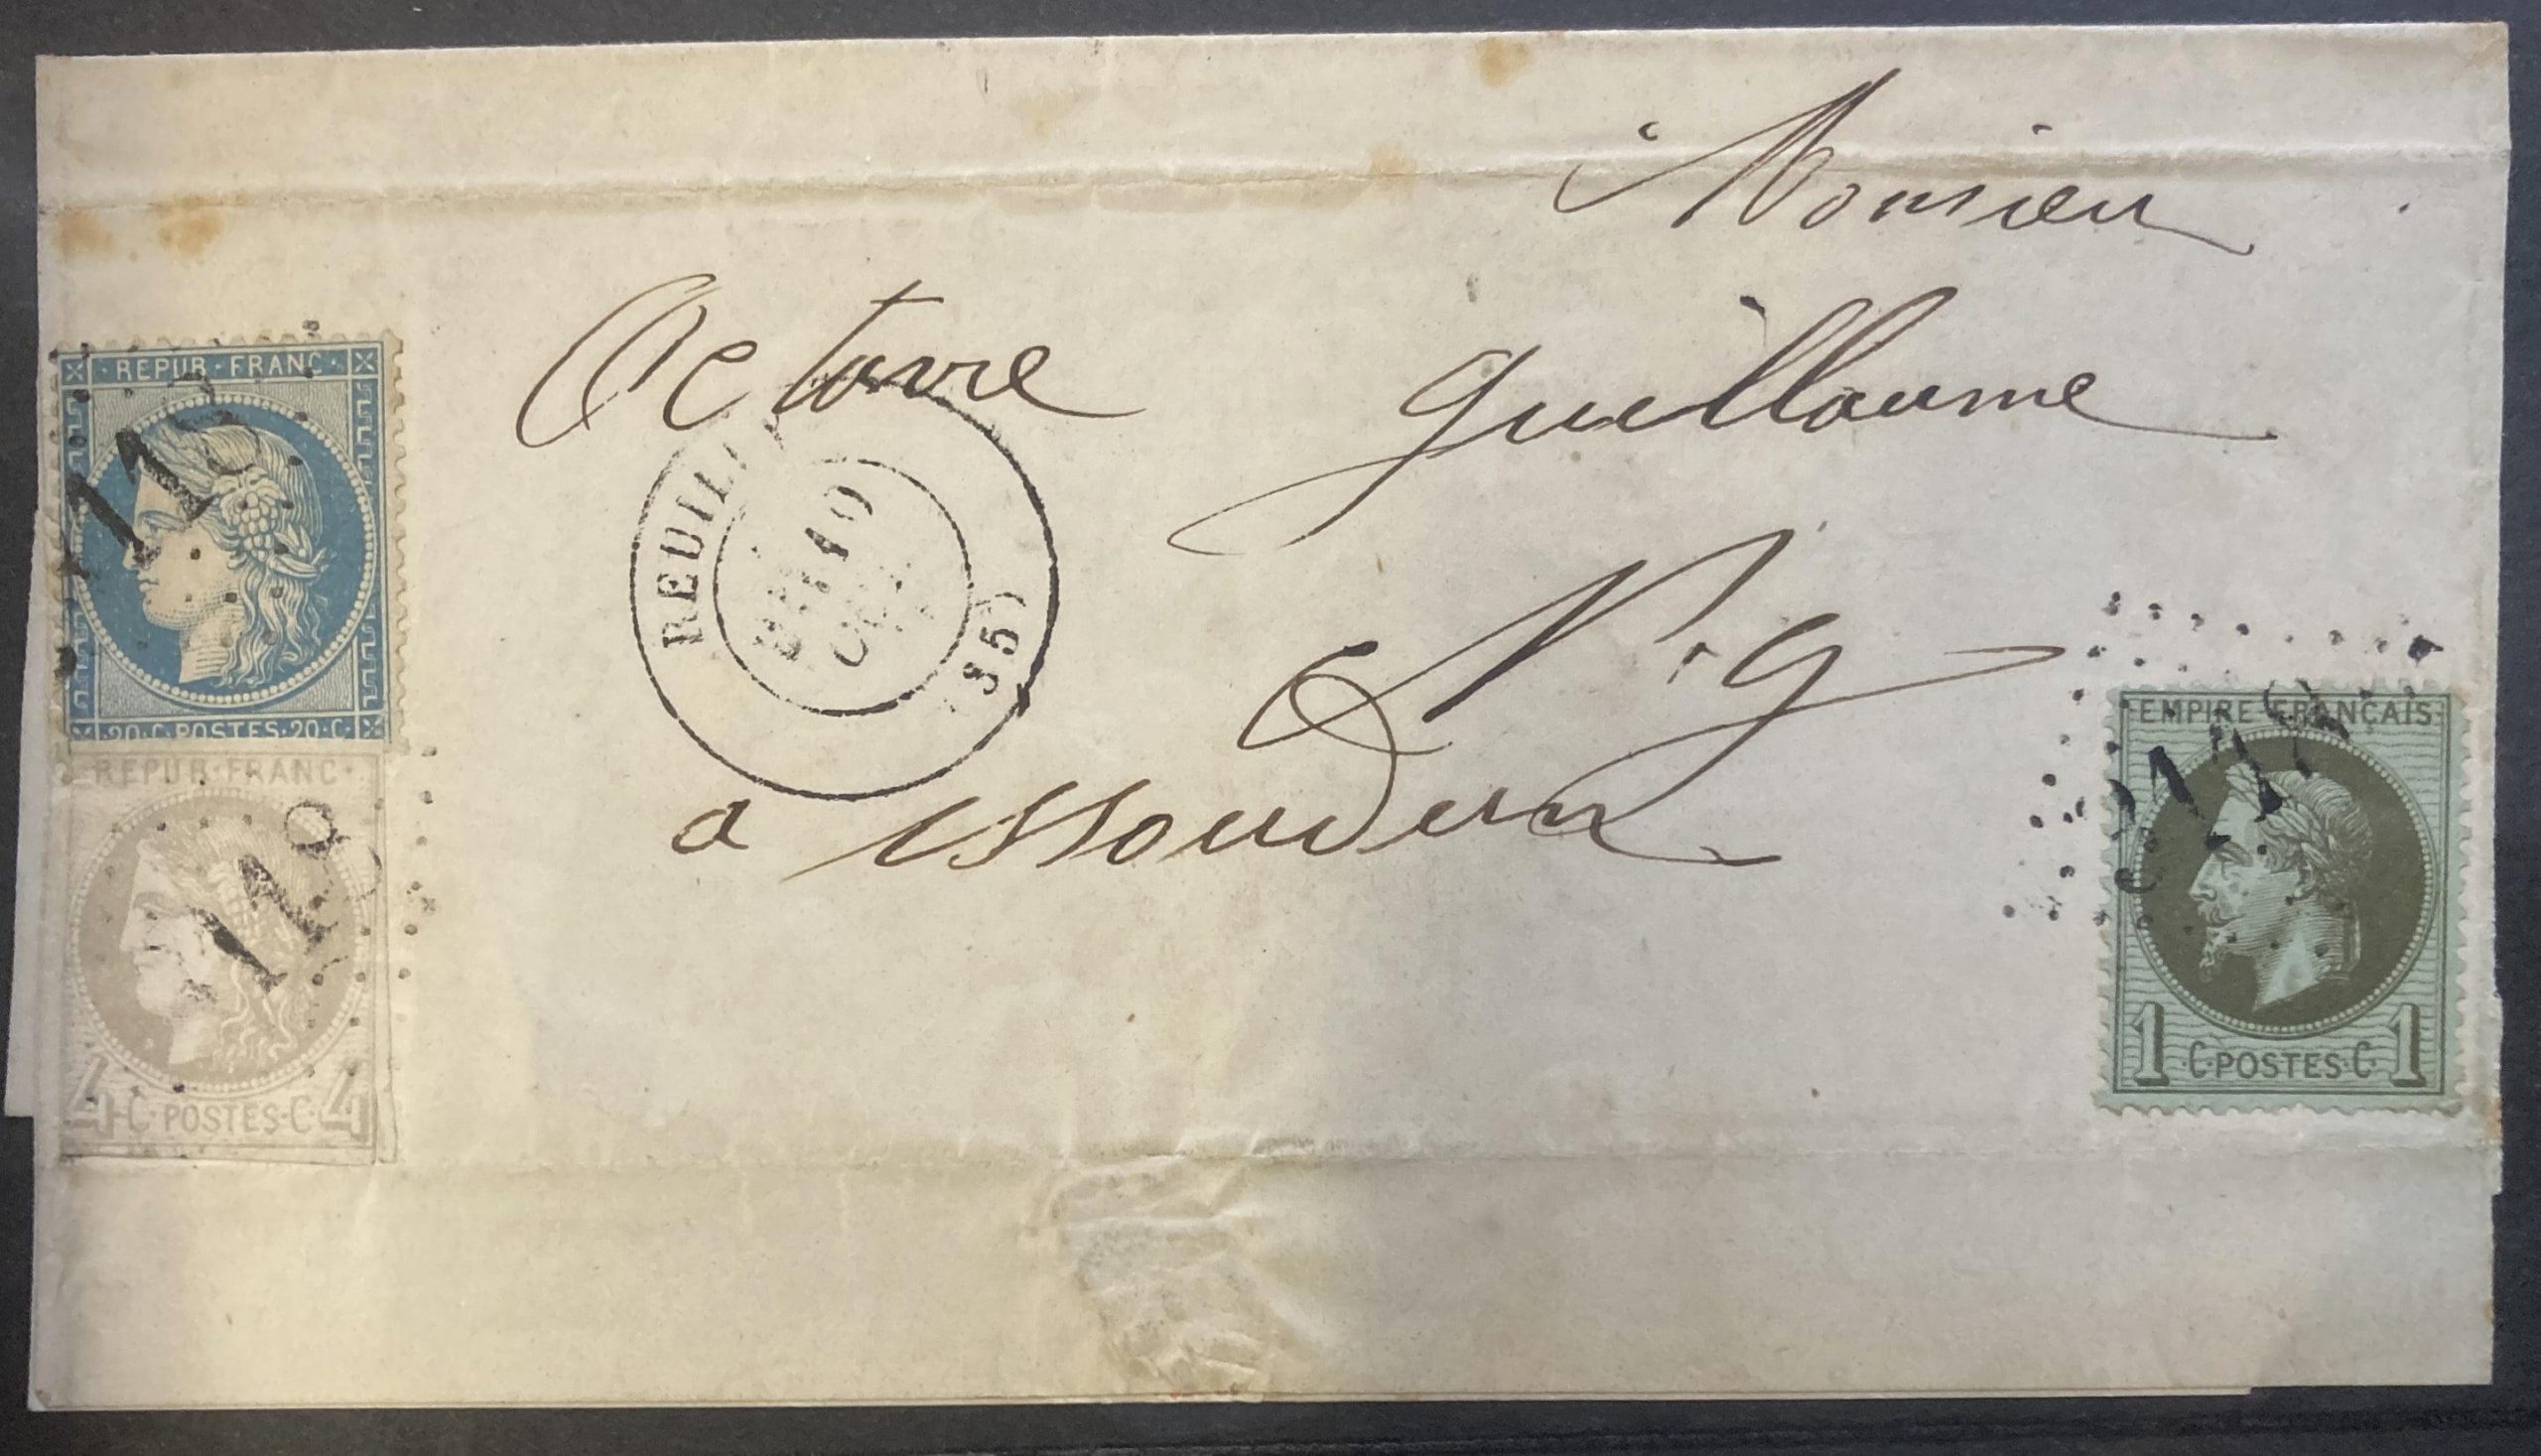 Monsieur
Octave Guillaume
N. g
a issoudun
REUILLY
10
(35)
· REPUB · FRANC ·
20 · C · POSTES · 20 · C ·
REPUB · FRANC ·
4 C · POSTES · C · 4
118
EMPIRE FRANÇAIS
1 · C · POSTES · C · 1